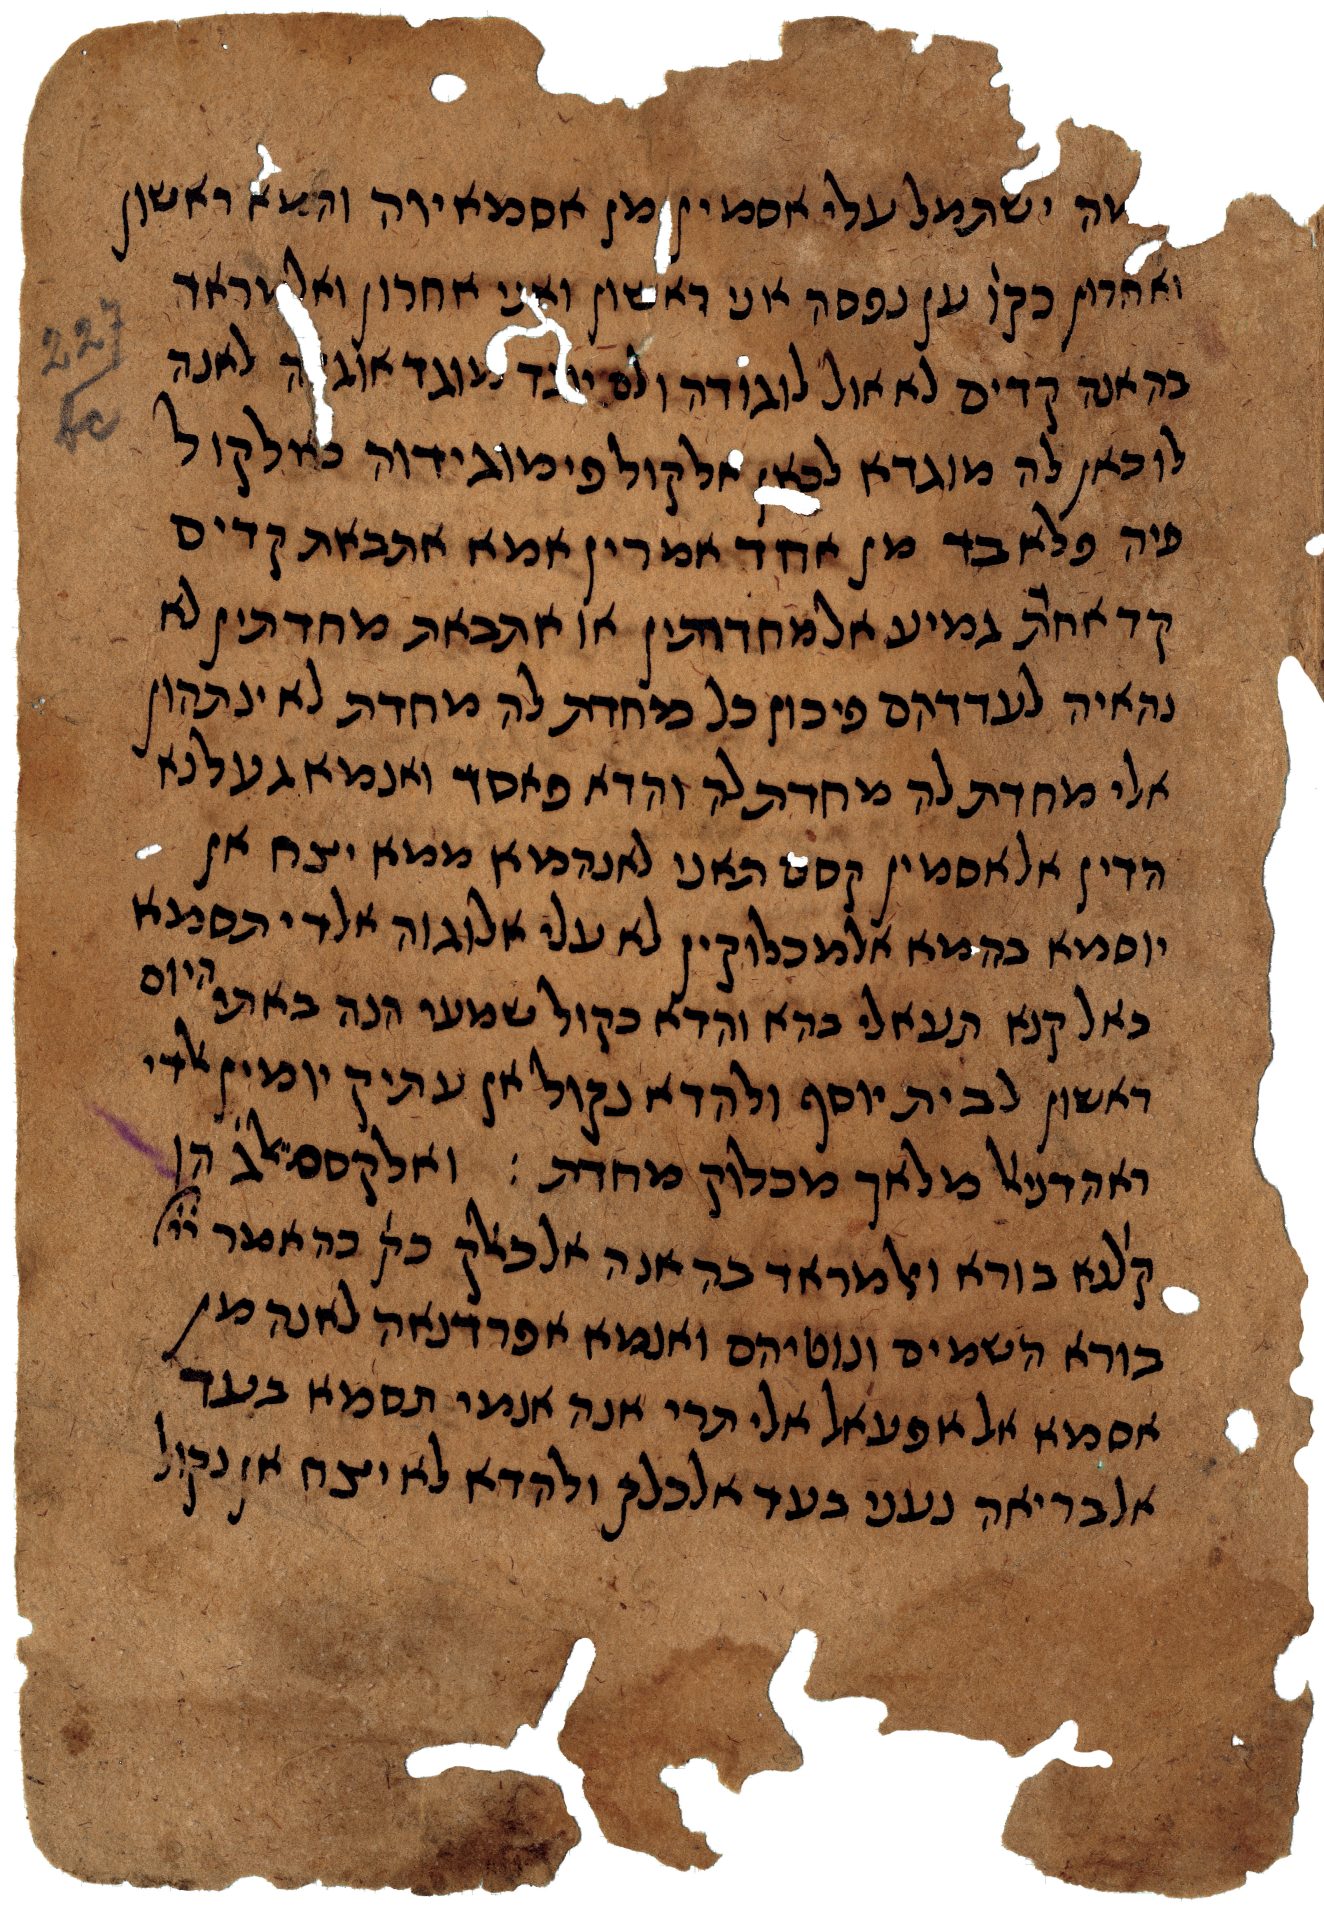 מה ישתמל עלי אסמין מן אסמאיה והמא ראשון
ואחרון כקו׳ ען נפסה אני ראשון ואני אחרון ואלמראד
בה אנה קדים לא אול לוגודה ולם יוגד מוגד אוגדה לאנה
לו כאן לה מוגדא לכאן אלקול פי מוגידוה כאלקול
פיה פלא בד מן אחד אמרין אמא אתבאת קדים
קד אחדת גמיע אלמחדתין או אתבאת מחדתין לא
נהאיה לעדדהם פיכון כל מחדת לה מחדת לא ינתהון
אלי מחדת לה מחדת לה והדא פאסד ואנמא געלנא
הדין אלאסמין קסם תאני לאנהמא ממא יצח אן
יוסמא בהמא אלמכלוקין לא עלי אלוגוה אלדי תסמא
באלקנא תעאלי בהא והדא כקול שמעי הנה באתי היום
ראשון לבית יוסף ולהדא נקול אן עתיק יומין אלדי
ראהדניאל מלאך מכלוק מחדת : ואלקסם אלג׳ הן
קולנא בורא ואלמראד בה אנה אלכאלק כק׳ כה אמר ייי
בורא השמים ונוטיהם ואנמא אפרדנאה לאנה מן
אסמא אלאפעאל אלי תרי אנה אנמי תסמא בעד
אלבריאה נעני בעד אלכלק ולהדא לא יצח אן נקול
227
6c